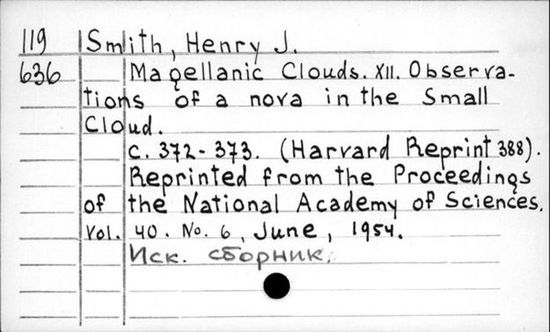 119 Smith, Henry J.
636 Magellanic Clouds. XII. Observa-
tions of a nova in the Small
Cloud.
c. 372-373. (Harvard Reprint 388).
Reprinted from the Proceedings
of the National Academy of Sciences.
Vol. 40. No. 6, June, 1954.
Иск. сборник.